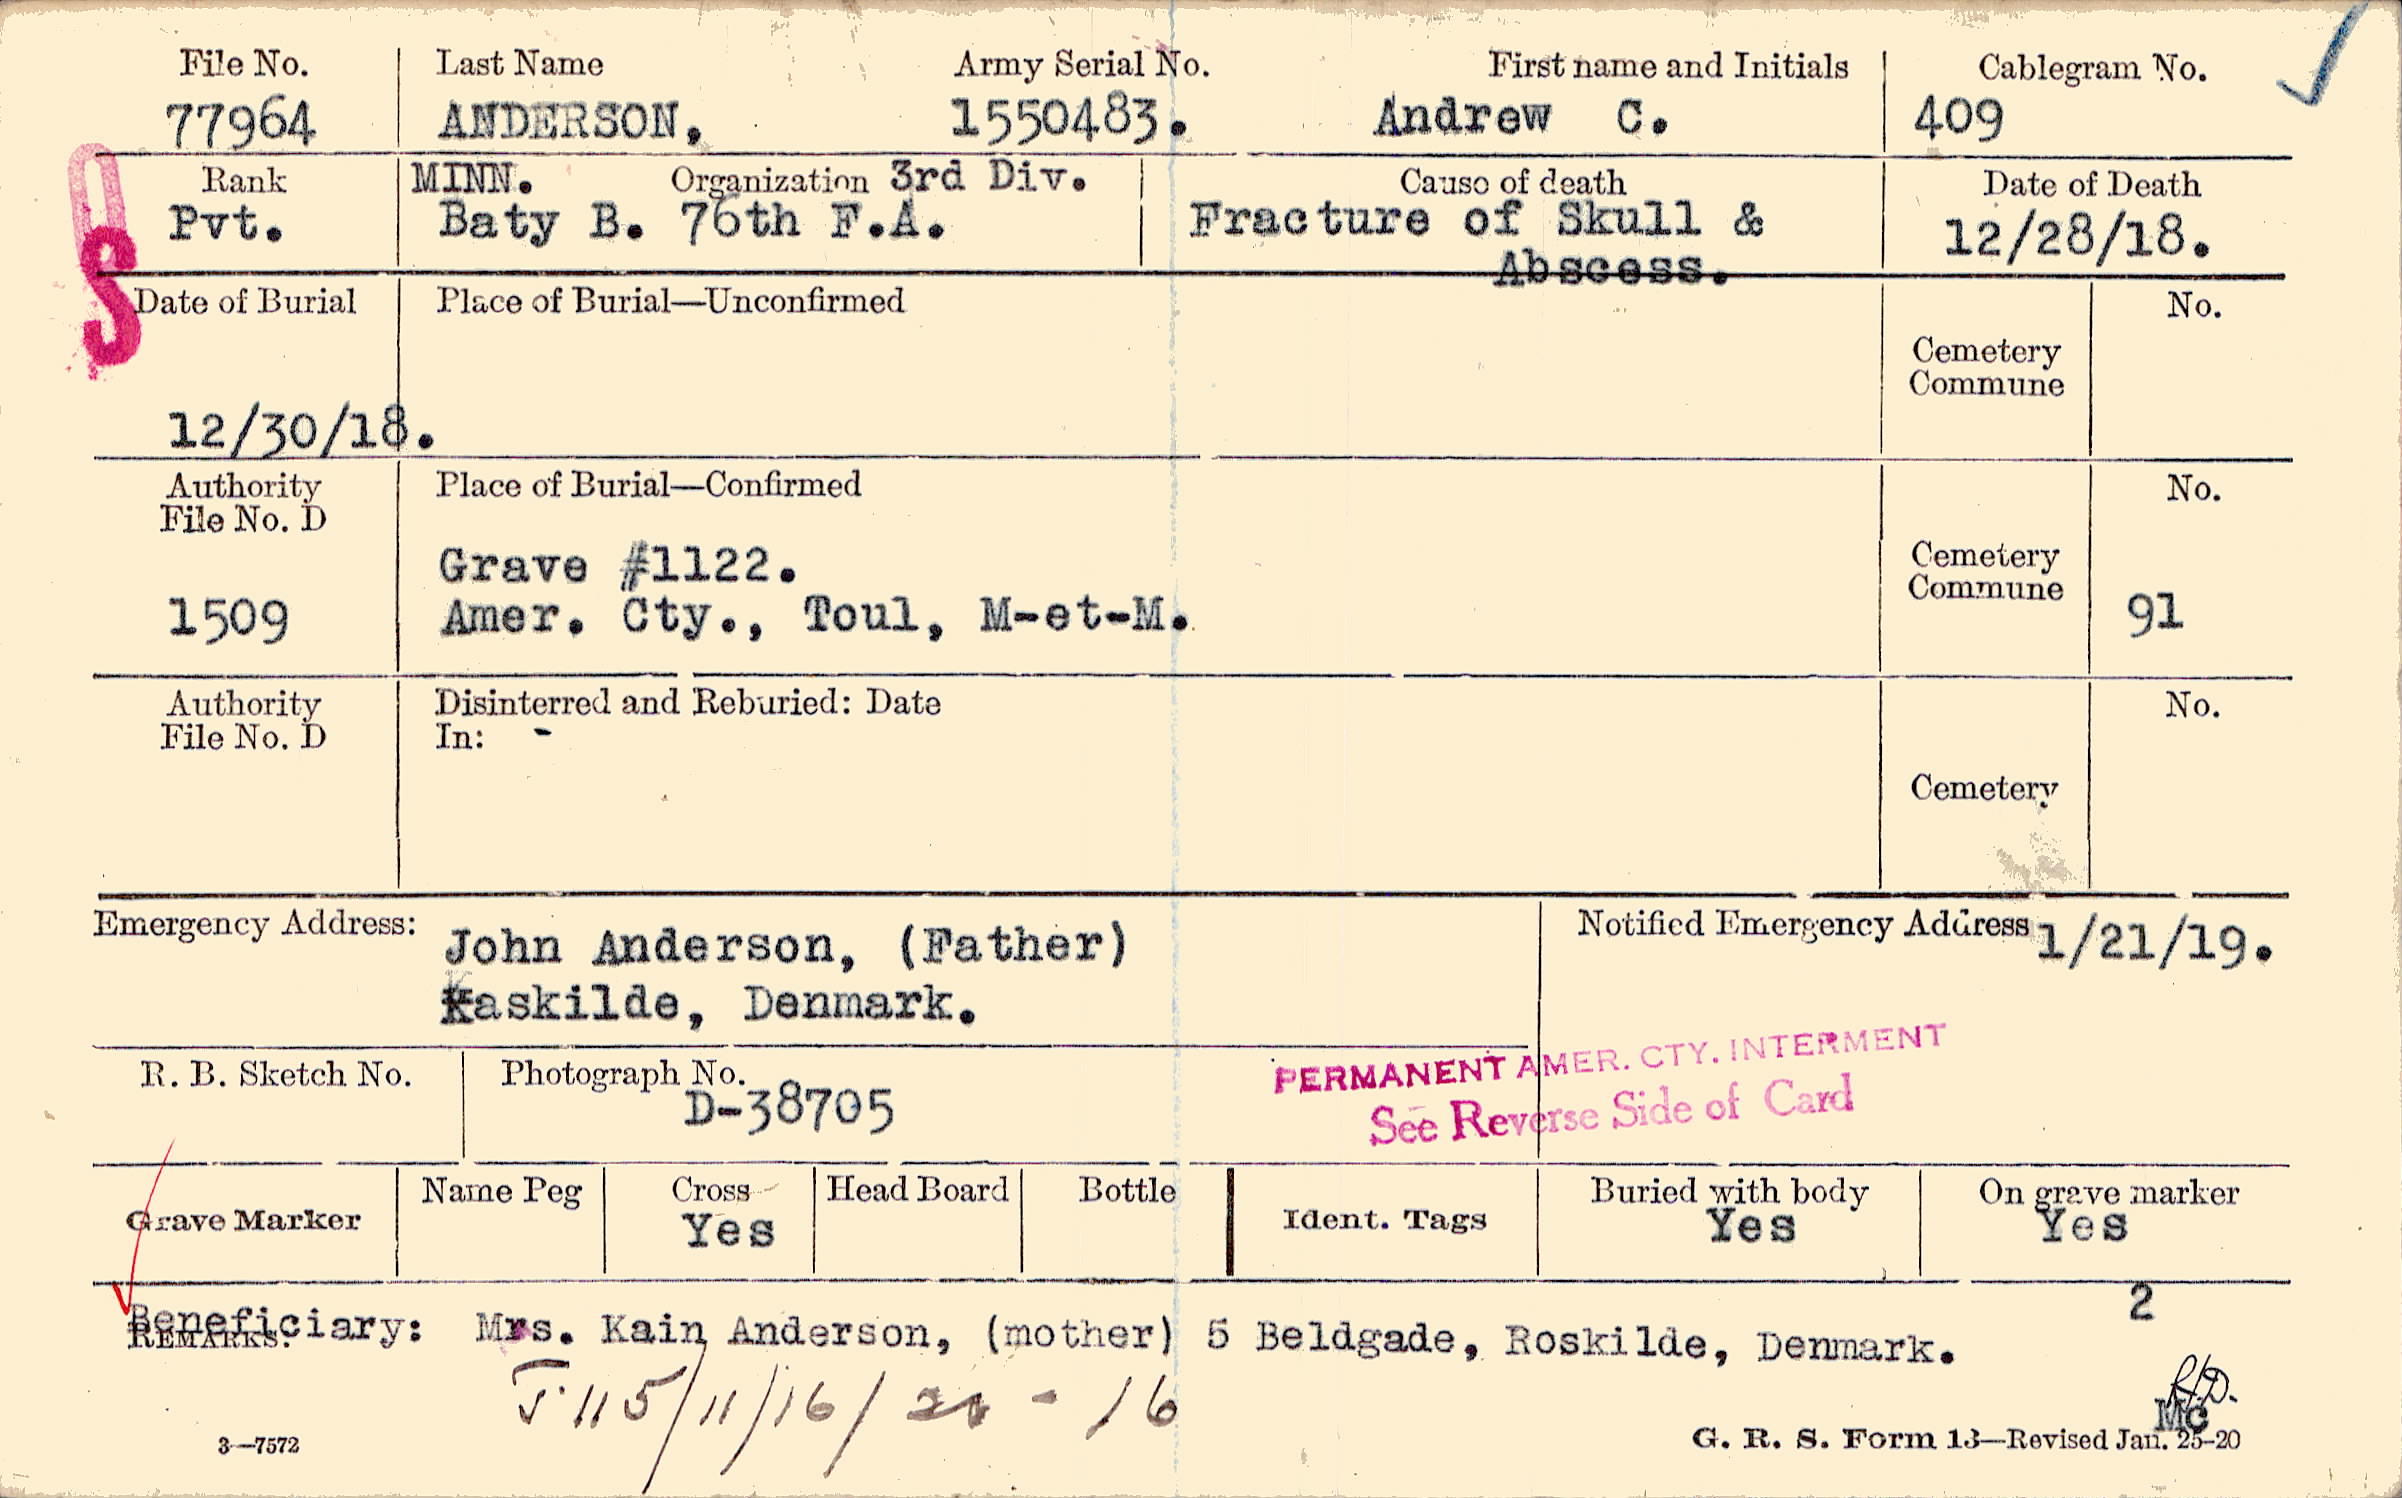 File No. Last Name Army Serial No. First name and Initials Cablegram No.
77964 ANDERSON, 1550483. Andrew C. 409
Rank MINN. Organization 3rd Div. Cause of death Date of Death
Pvt. Baty B. 76th F.A. Fracture of Skull & 12/28/18.
Abscess.
S
Date of Burial Place of Burial—Unconfirmed No.
Cemetery
Commune
12/30/18.
Authority Place of Burial—Confirmed No.
File No. D
Grave #1122. Cemetery
Commune
1509 Amer. Cty., Toul, M-et-M. 91
Authority Disinterred and Reburied: Date No.
File No. D In: -
Cemetery
Emergency Address: John Anderson, (Father) Notified Emergency Address 1/21/19.
Kaskilde, Denmark.
R. B. Sketch No. Photograph No. PERMANENT AMER. CTY. INTERMENT
D-38705 See Reverse Side of Card
Grave Marker Name Peg Cross Head Board Bottle Ident. Tags Buried with body On grave marker
Yes Yes Yes
2
Beneficiary: Mrs. Kain Anderson, (mother) 5 Beldgade, Roskilde, Denmark.
REMARKS:
115/11/16/ - 16
Mc
3—7572 G. R. S. Form 13—Revised Jan. 25-20